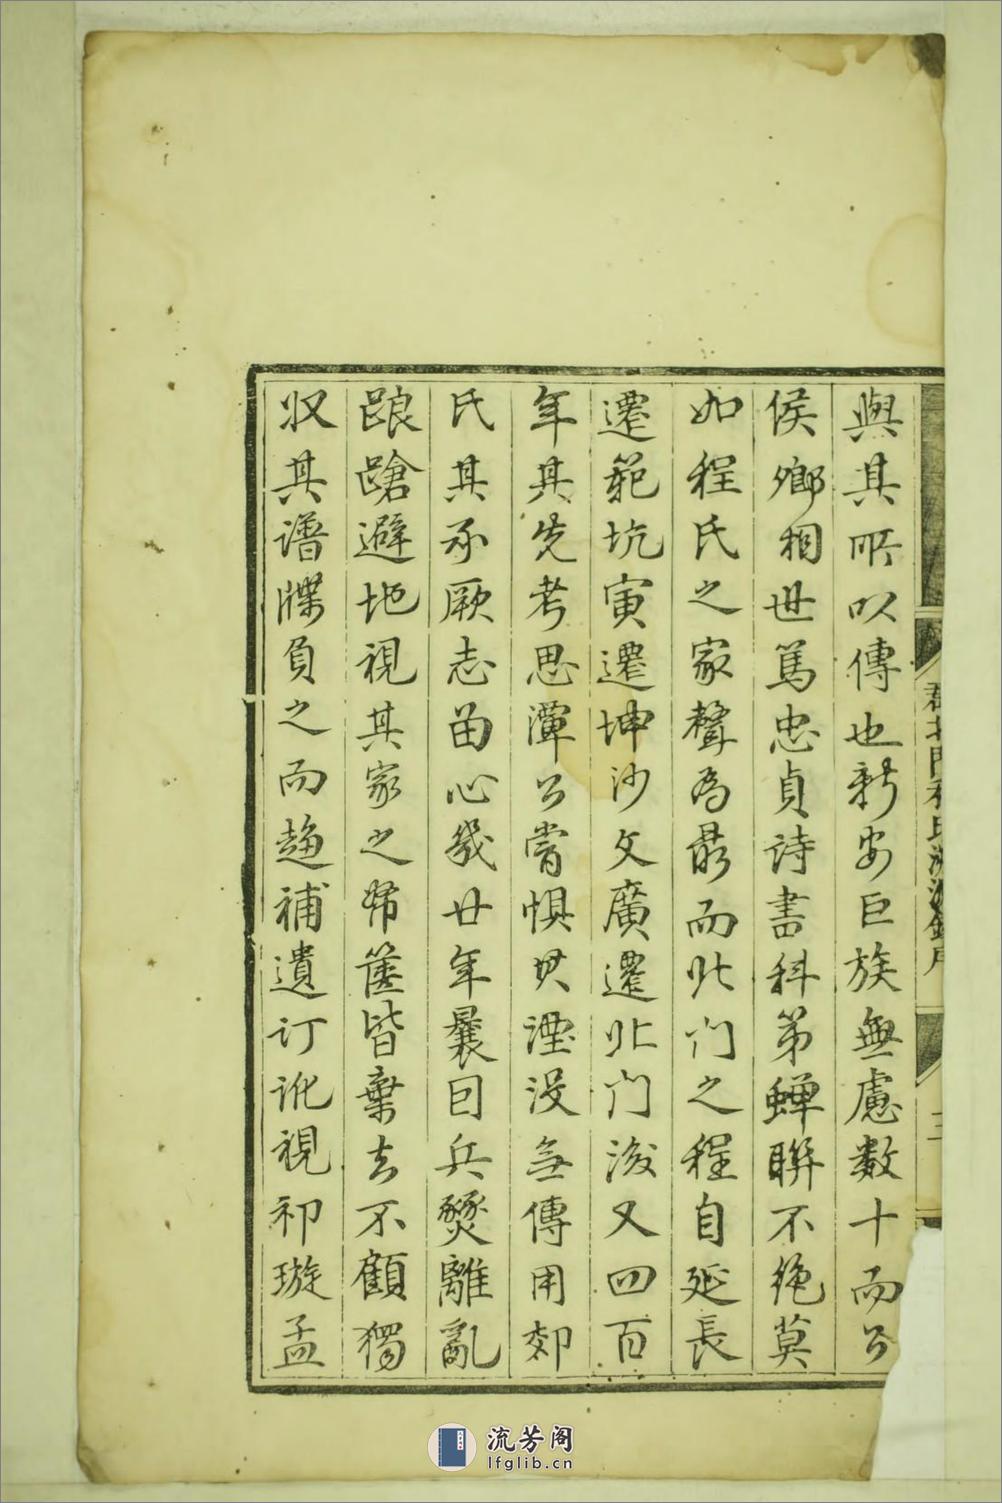 與其所以傳也新安巨族無慮數十而公
侯鄉相世篤忠貞詩書科第蟬聯不絶莫
如程氏之家聲為最而北门之程自延長
遷範坑寅遷坤沙文廣遷北门浚又四百
年其先考思潭公嘗惧其湮没無傳用郊
氏其承厥志苗心幾廿年曩因兵燹離亂
踉蹌避地視其家之帑篋皆棄去不顧獨
収其譜牒負之而趋補遺订訛視初璇孟
北門程氏
三
流芳阁
lfglib.cn